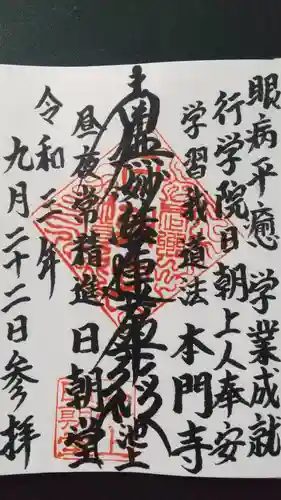 眼病平癒 学業成就
行学院日朝上人奉安
学習我道法 本門寺
南無妙法蓮華経
池上
昼夜常精進 日朝堂
令和三年
九月二十二日参拝